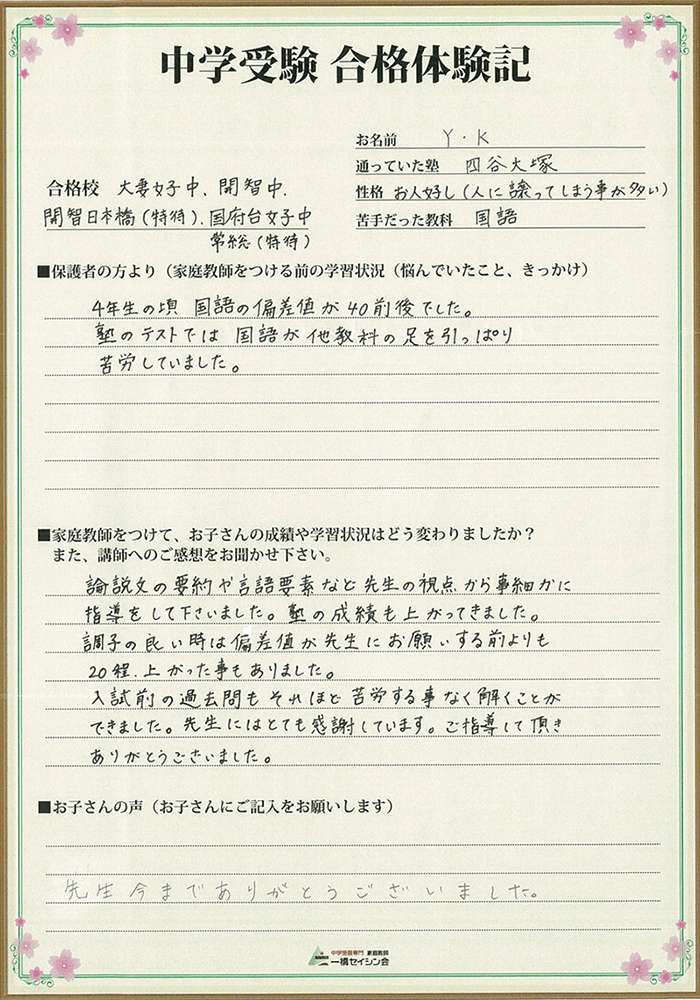 中学受験 合格体験記
お名前 Y・K
通っていた塾 四谷大塚
性格 お人好し(人に譲ってしまう事が多い)
苦手だった教科 国語
合格校 大妻女子中、開智中、
開智日本橋(特待)、国府台女子中
常総(特待)
■保護者の方より(家庭教師をつける前の学習状況(悩んでいたこと、きっかけ)
4年生の頃 国語の偏差値が40前後でした。
塾のテストでは 国語が他教科の足を引っぱり
苦労していました。
■家庭教師をつけて、お子さんの成績や学習状況はどう変わりましたか?
また、講師へのご感想をお聞かせ下さい。
論説文の要約や言語要素など先生の視点から事細かに
指導をして下さいました。塾の成績も上がってきました。
調子の良い時は偏差値が先生にお願いする前よりも
20程、上がった事もありました。
入試前の過去問もそれほど苦労する事なく解くことが
できました。先生にはとても感謝しています。ご指導して頂き
ありがとうございました。
■お子さんの声(お子さんにご記入をお願いします)
先生今までありがとうございました。
中学受験専門 家庭教師
一橋セイシン会